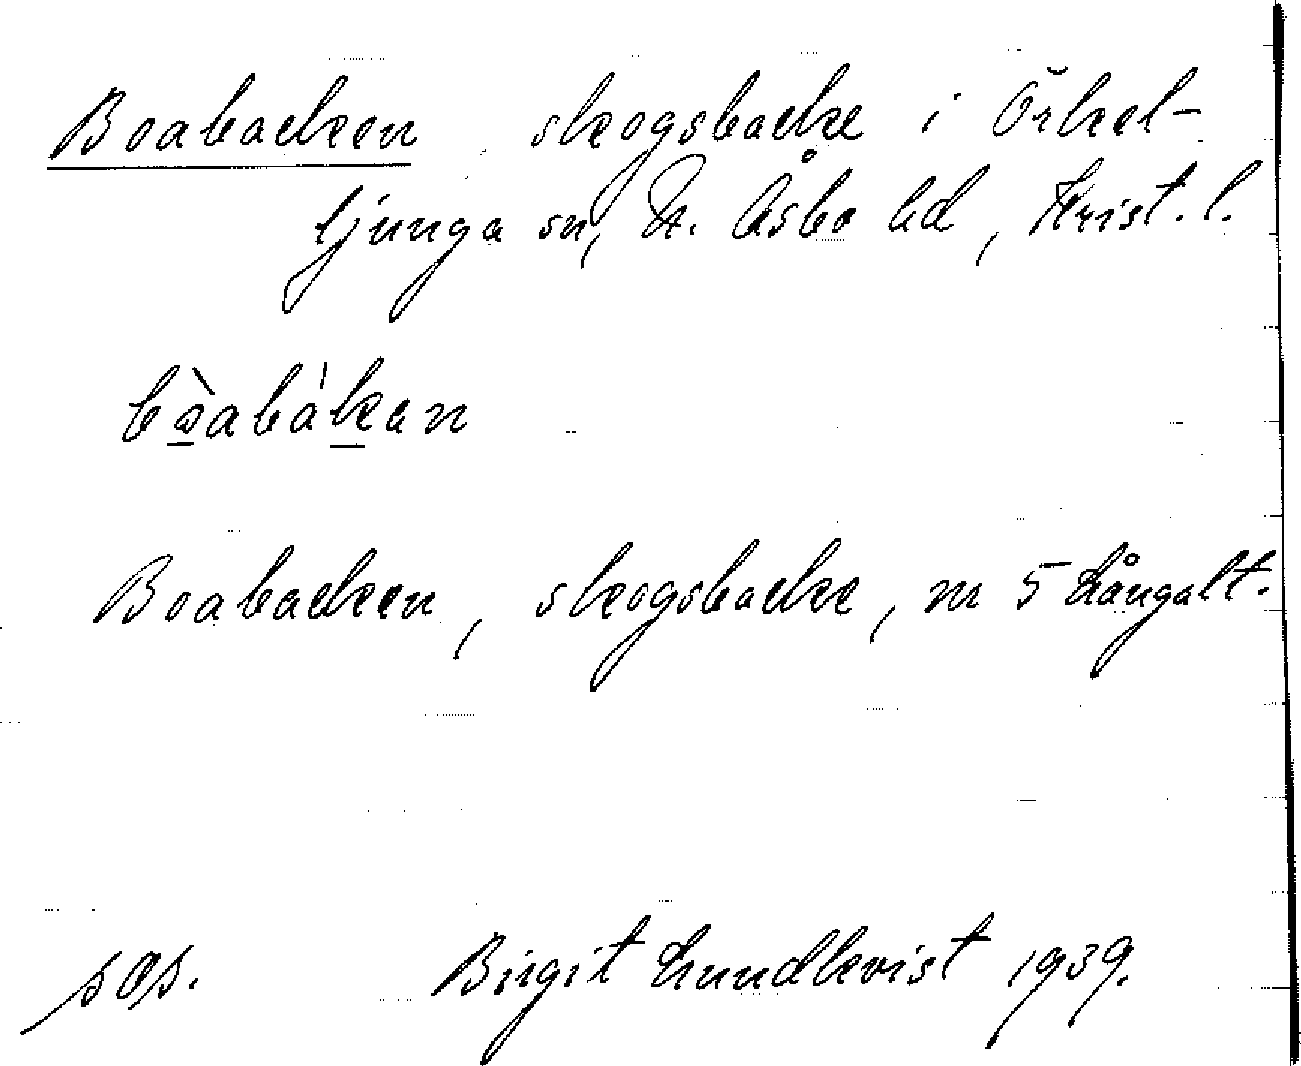 Boabacken skogsbacke i Örkel-
ljunga sn, N. Åsbo hd, Krist. l.
Boabacken, skogsbacke, m 5 Långalt.
Birgit Lundkvist 1939.